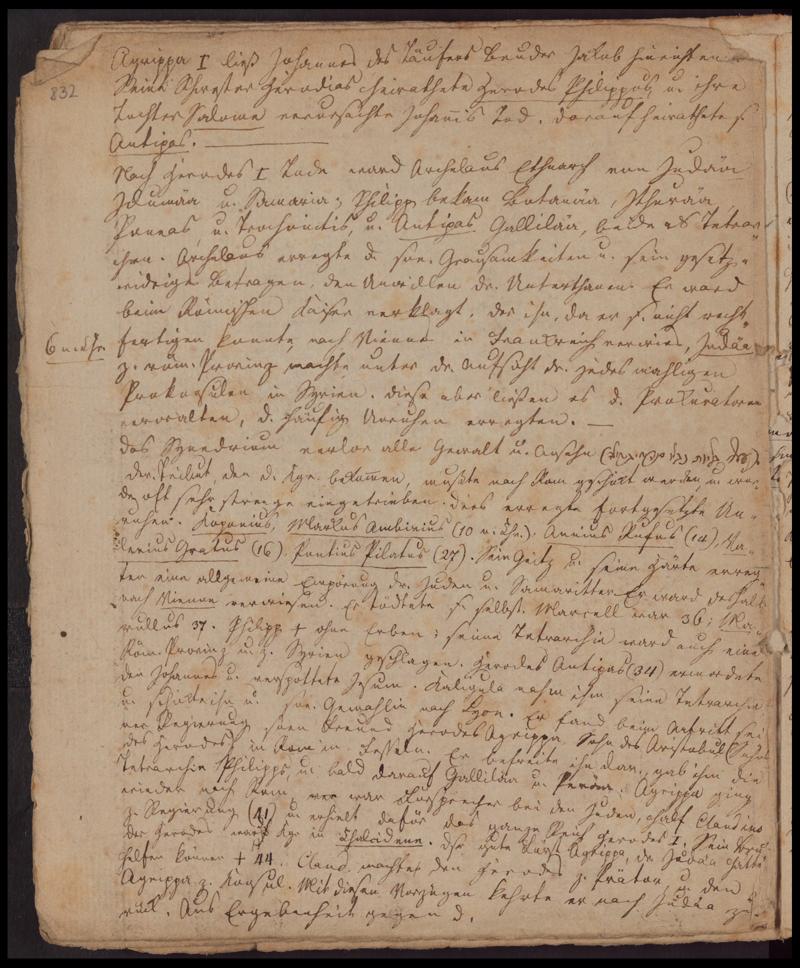 832
Agrippa I ließ Johannes des Täufers Bruder Jakob hinrichten
Seine Schwester Herodias heirathete Herodes Philippus, u. ihre
Tochter Salome verursachte Johannis Tod. darauf heirathete s.
Antipas.
Nach Herodes I Tode ward Archelaus Ethnarch von Judäa
Idumäa u. Samaria; Philipp bekam Batanäa, Ithuräa,
Paneas, u. Trachonitis, u. Antipas Galliläa, beide als Tetrar-
chen. Archelaus erregte d. sne. Grausamkeiten u. sein gesetz-
widriges Betragen, den Unwillen dr. Unterthanen. Er ward
beim Römischen Kaiser verklagt, der ihn, da er s. nicht recht-
6 n. Chr. fertigen konnte, nach Vienne in Frankreich verwies, Judäa
z. röm. Provinz machte unter dr. Aufsicht dr. jedesmahligen
Prokonsulen in Syrien. diese aber ließen es d. Prokuratoren
verwalten, d. häufig Unruhen erregten. —
das Synedrium verlor alle Gewalt u. Ansehn
der Tribut, den d. Kge. bekommen, mußte nach Rom geschickt werden, u. wur-
de oft sehr strenge eingetrieben. dies erregte fortgesetzte Un-
ruhen. Koponius, Markus Ambivius (10 n. Chr.). Annius Rufus (14), Va-
lerius Gratus (16). Pontius Pilatus (27). Sein Geitz u. seine Härte erreg-
ten eine allgemeine Empörung dr. Juden u. Samaritter. Er ward deshalb
nach Vienne verwiesen. Er tödtete s. selbst. Marcell war 36; Ma-
rullus 37. Philipp † ohne Erben; seine Tetrarchie ward auch eine
Röm. Provinz u. z. Syrien geschlagen. Herodes Antipas (34) ermordete
den Johannes u. verspottete Jesum. Kaligula nahm ihm seine Tetrarchie
u. schickte ihn u. sne. Gemahlin nach Lyon. Er fand beim Antritt sei-
ner Regierung snen Freund Herodes Agrippa Sohn des Aristobul
des Herodes) in Rom in Fesseln. Er befreite ihn dar., gab ihm die
Tetrarchie Philipps, u. bald darauf Galliläa u. Peräa. Agrippa ging
wieder nach Rom, war Fürsprecher bei den Juden, half Claudius
z. Regierung (41) u. erhielt dafür das ganze Reich Herodes I. Sein
der Herodes ward Kge in Chalcidene. Der gute Fürst Agrippa, der Judäa hätte
helfen können † 44. Claud. machte den Herodes z. Prätor u. den
Agrippa z. Konsul. Mit diesen Vorzügen kehrte er nach Judäa zu-
rück. Aus Ergebenheit gegen d.